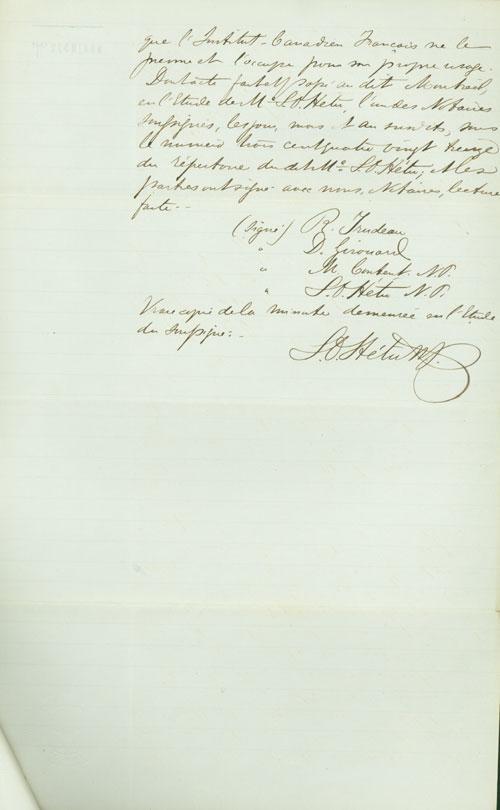 que l'Institut-Canadien Français ne le
prenne et l'occupe pour son propre usage.
Dont acte fait et passé au dit Montréal,
en l'Etude de Mtre L.O. Hétu, l'un des Notaires
soussignés, les jour, mois et an susdits, sous
le numéro trois cent quatre vingt treize
du répertoire du dit Mtre L.O. Hétu, et les
parties ont signé avec nous, Notaires, lecture
faite.-
(Signé) R. Trudeau
" D. Girouard
" M. Content. N.P.
" L.O. Hétu N.P.
Vraie copie de la minute demeurée en l'Etude
du soussigné:-
L.O. Hétu N.P.